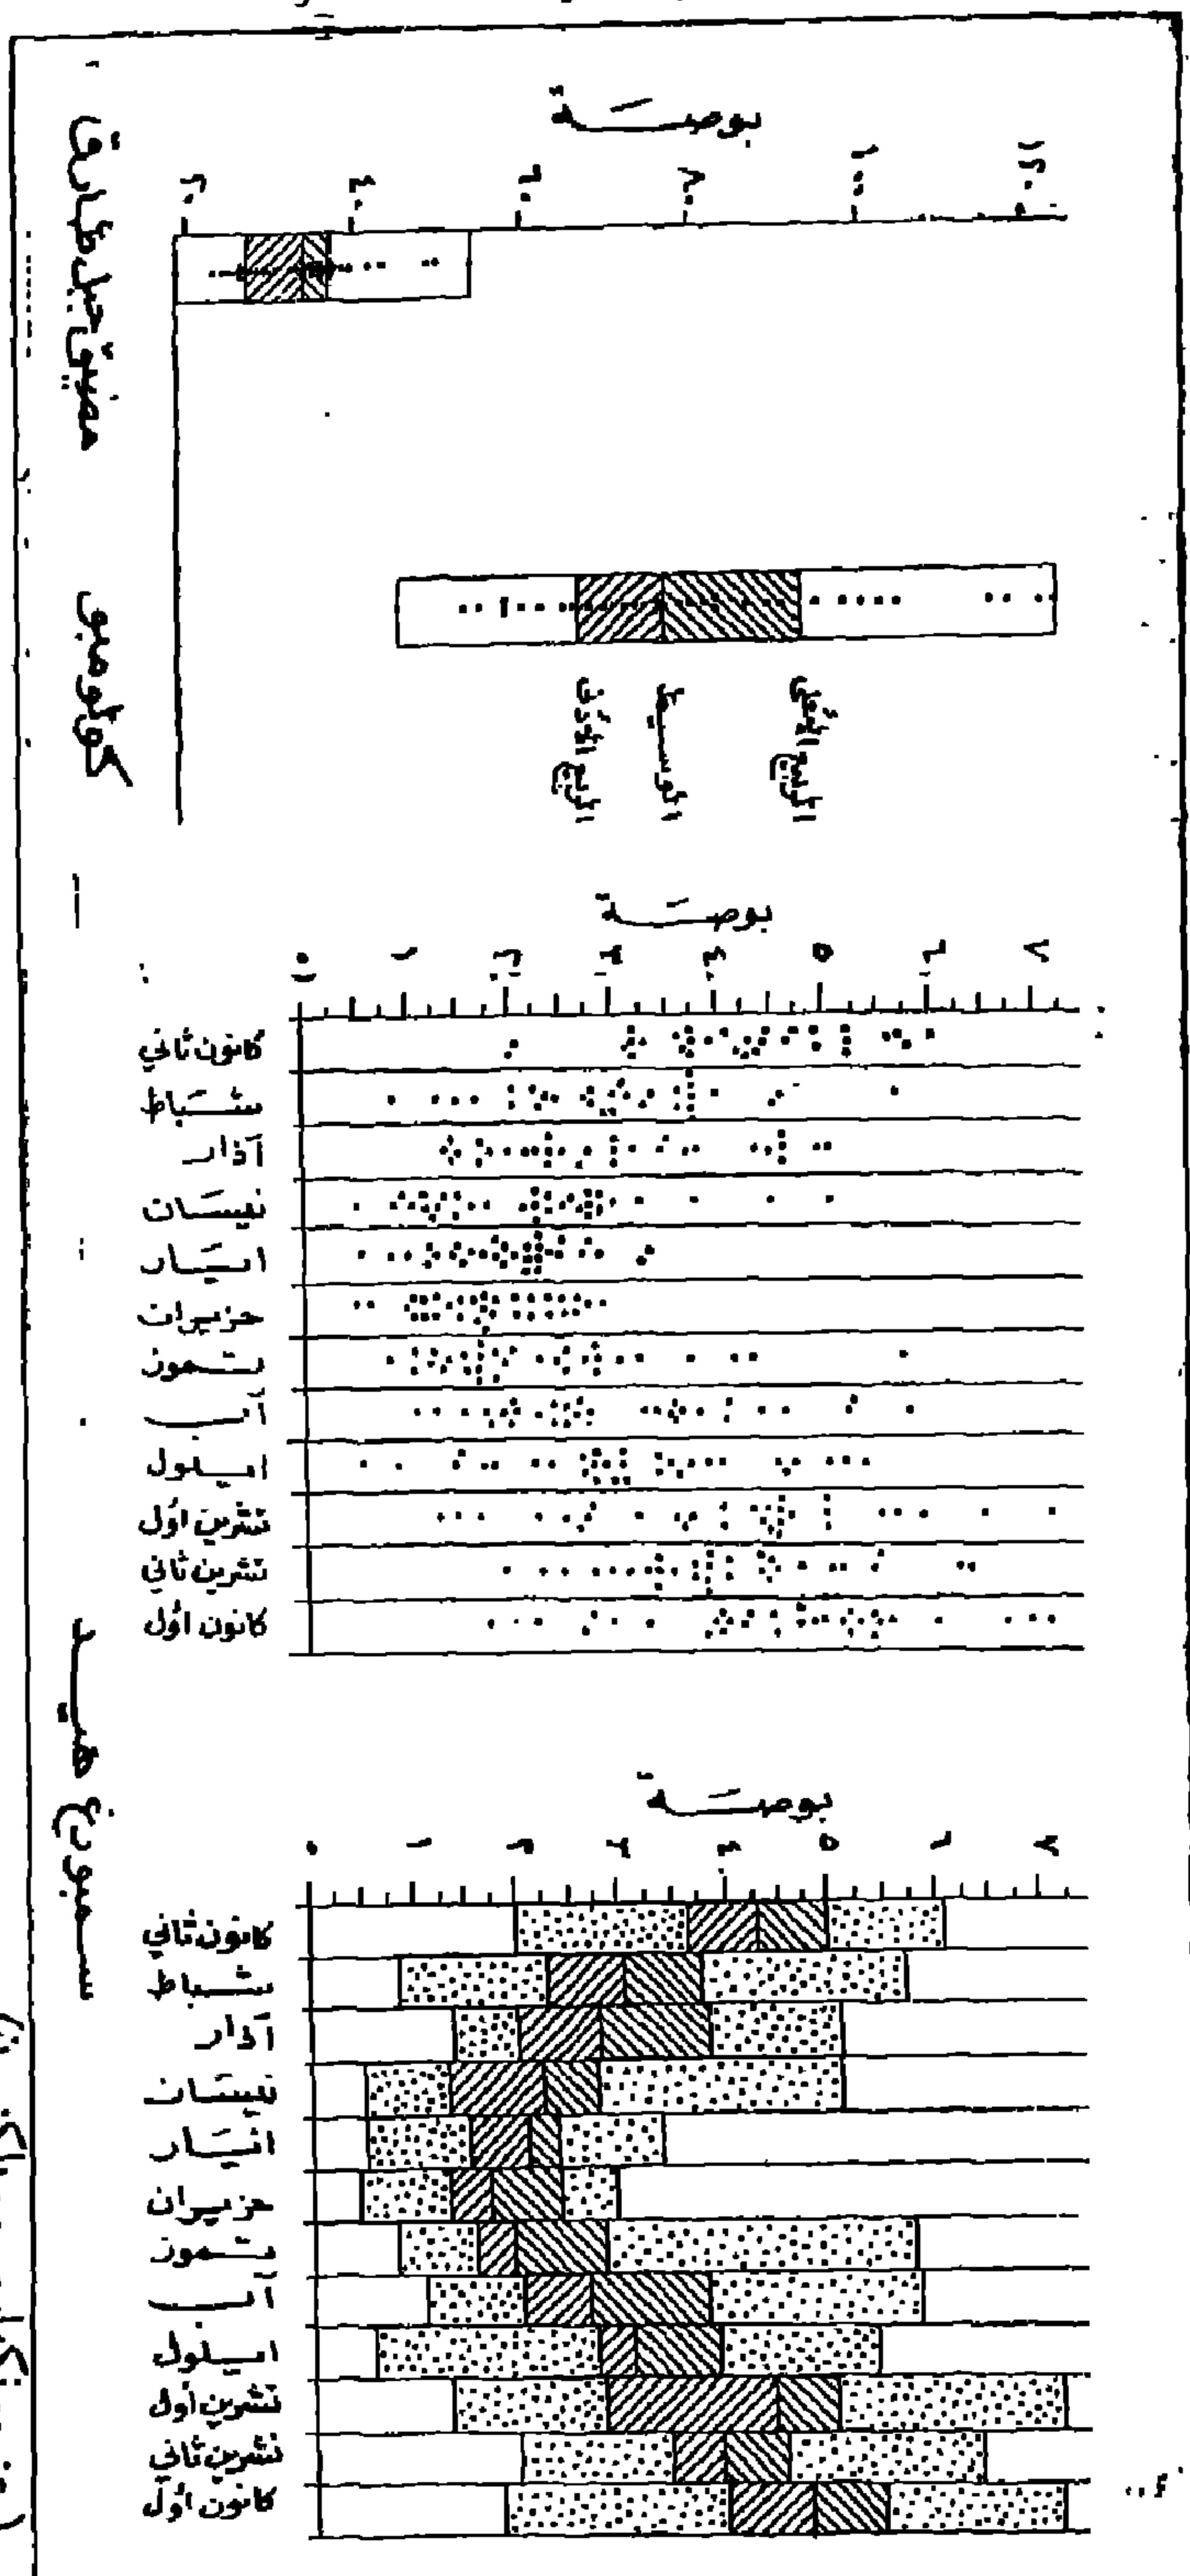 بوصة
٢٠ ٤٠ ٦٠ ٨٠ ١٠٠ ١٢٠
مضيق جبل طارق
كولومبو
الربيع الأعلى
الوسيط
الربيع الأدنى
بوصة
٠ ١ ٢ ٣ ٤ ٥ ٦ ٧
كانون ثاني
شباط
آذار
نيسان
ايار
حزيران
تموز
آب
ايلول
تشرين اول
تشرين ثاني
كانون اول
بوصة
٠ ١ ٢ ٣ ٤ ٥ ٦ ٧
كانون ثاني
شباط
آذار
نيسان
ايار
حزيران
تموز
آب
ايلول
تشرين أول
تشرين ثاني
كانون أول